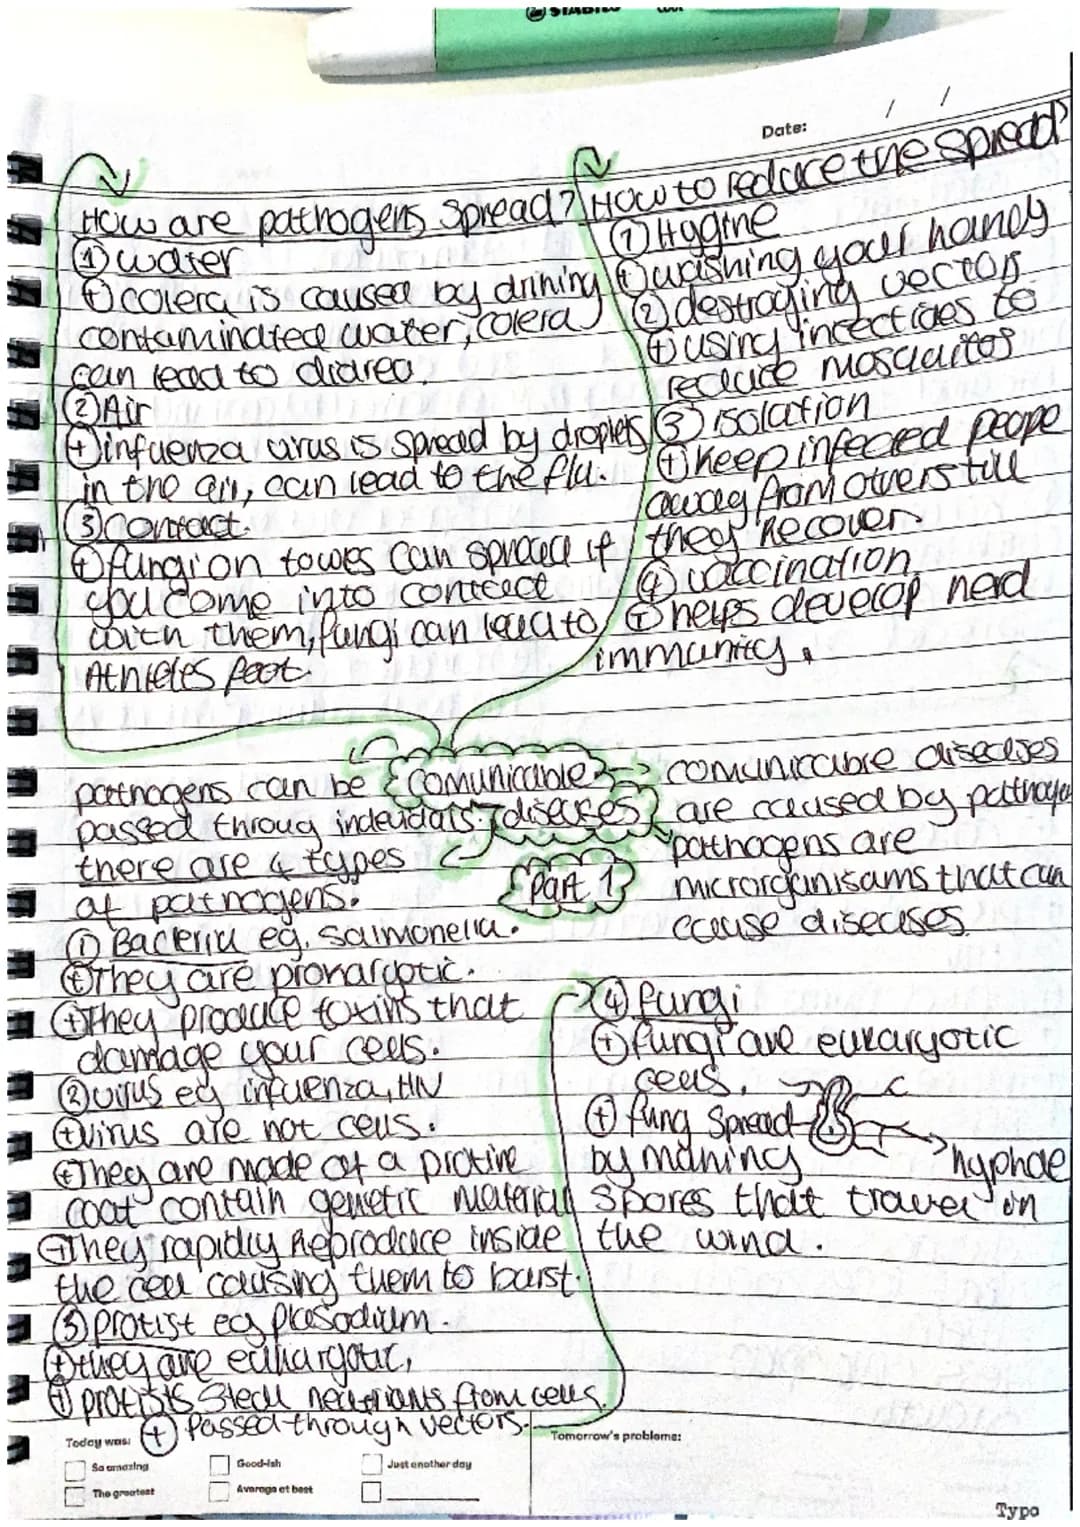 STABILO
Date: / /
How are pathogens spread?
① water
⊕ colera is caused by drining
contaminated water, colera
can lead to diarea.
② Air
⊕ infuenza virus is spread by droplets
in the air, can lead to the flu.
③ contact.
⊕ fungi on towes can spread if
you come into contact
with them, fungi can lead to
Athletes foot.
How to reduce the spread?
① Hygine
⊕ washing your hands
② destroying vectors
⊕ using insectides to
reduce mosquitos
③ isolation
⊕ keep infected peope
away from others till
they recover.
④ vaccination
⊕ helps develop herd
immunity.
comunicable
diseases
Part 1
comunicable diseases
are caused by pathoge
pathogens are
microrganisams that can
cause diseases.
pathogens can be
passed throug indeviduals.
there are 4 types
of pathogens.
① Bacteria eg. salmonella.
⊕ They are prokaryotic.
⊕ They produce toxins that
damage your cells.
② virus eg infuenza, HIV
⊕ virus are not cells.
⊕ They are made of a protine
coat contain genetic material
⊕ They rapidly Reproduce inside
the cell causing them to burst.
③ protist eg plasodium.
⊕ they are eukaryotic,
⊕ protists steal neutriants from cells.
⊕ Passed through vectors.
④ fungi
⊕ fungi are eukaryotic
cells.
⊕ fung spread
by making
spores that travel in
the wind.
hyphae
Today was:
So amazing
Good-ish
Just another day
The greatest
Average at best
Tomorrow's problems:
Typo